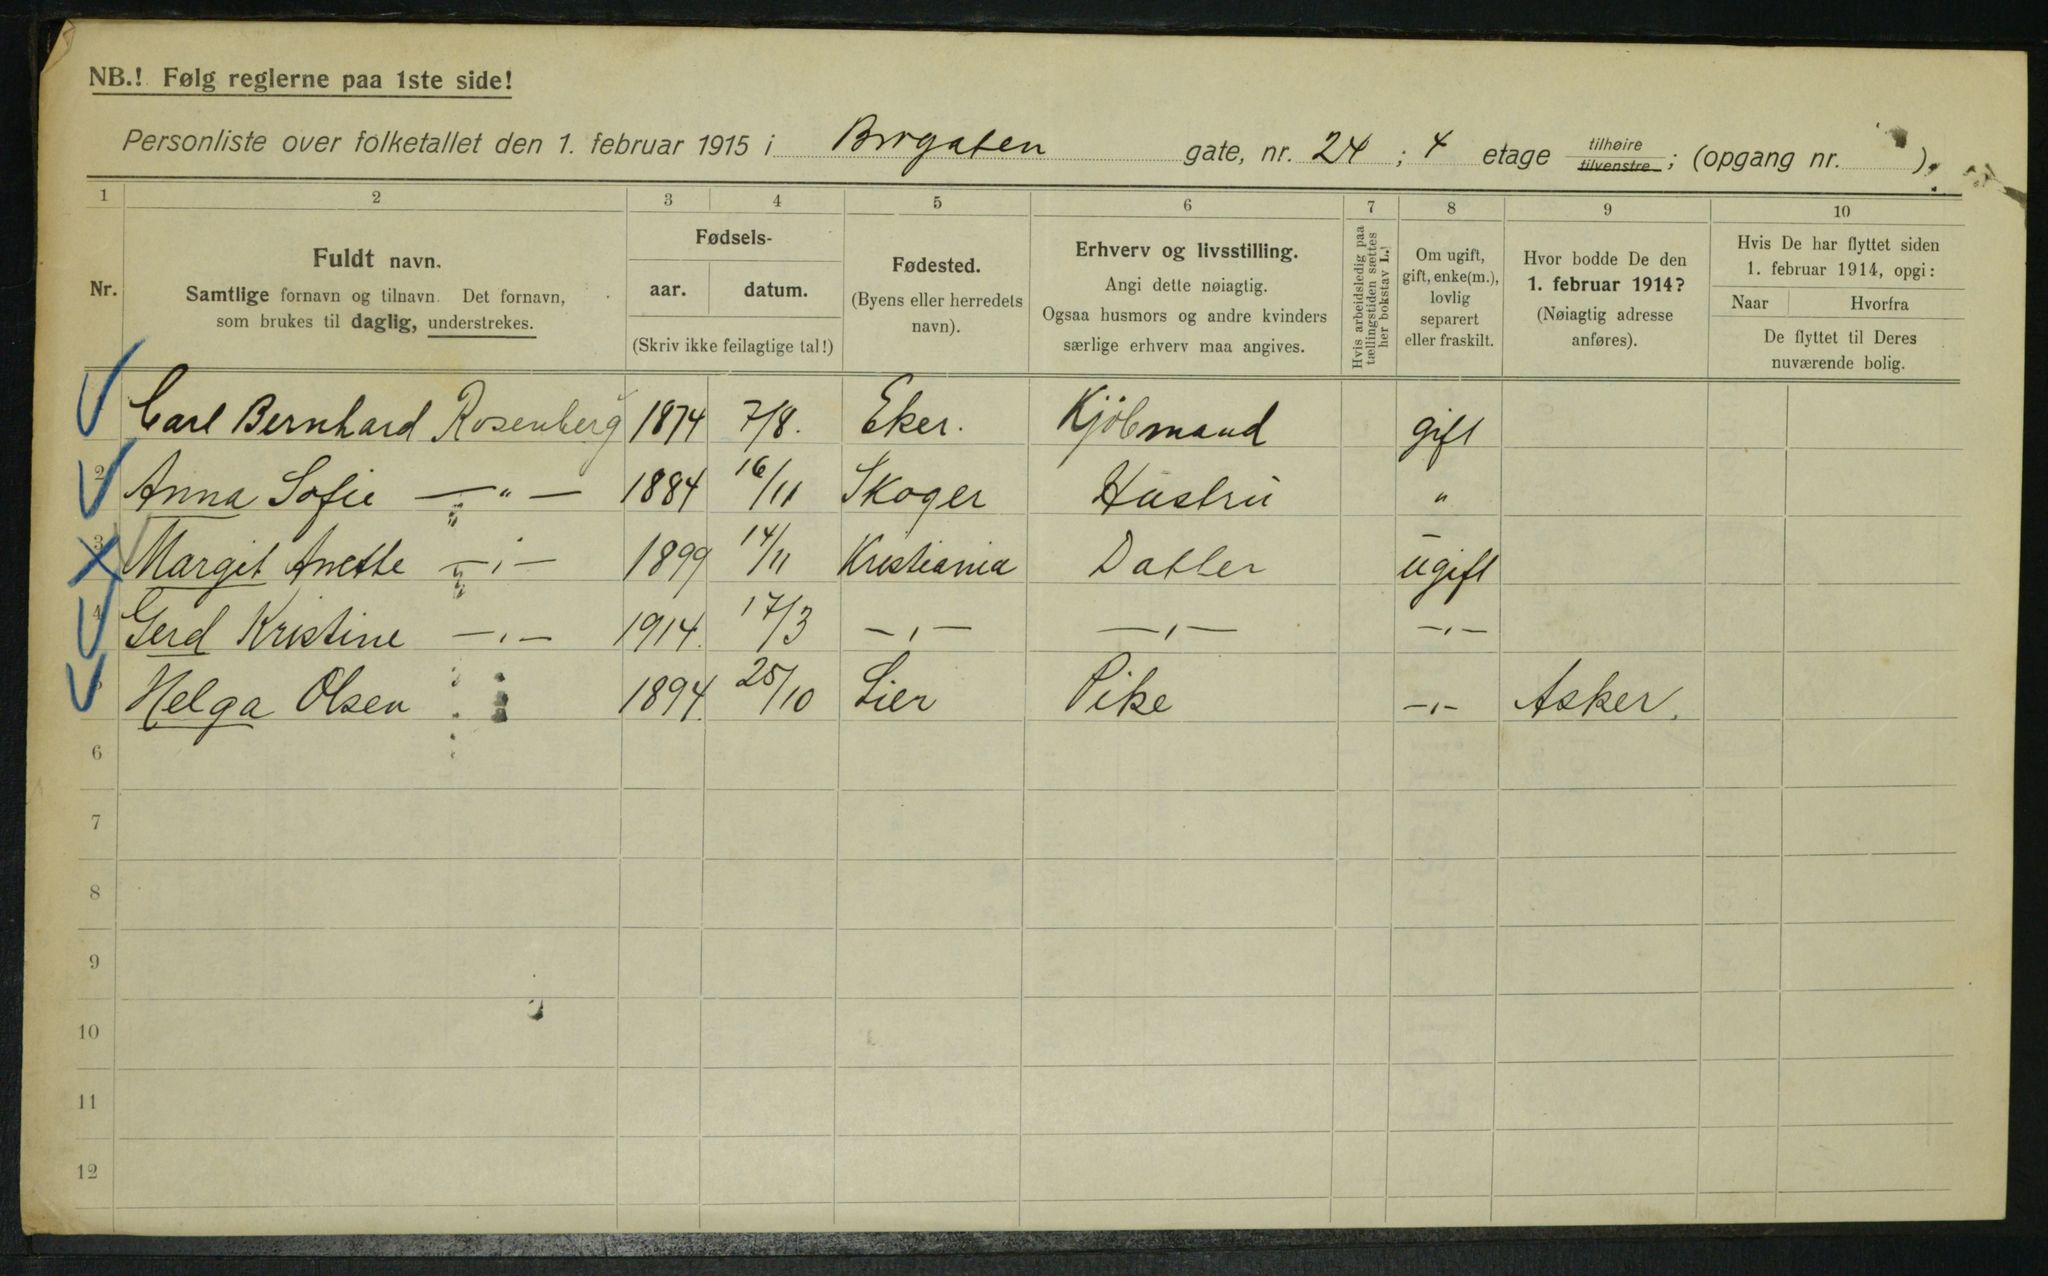 NB.! Følg reglerne paa 1ste side!
Personliste over folketallet den 1. februar 1915 i Brogaten gate, nr. 24 ; 4 etage tilhøire tilvenstre ; (opgang nr. )
1 2 3 4 5 6 7 8 9 10
Nr.
Fuldt navn.
Samtlige fornavn og tilnavn. Det fornavn,
som brukes til daglig, understrekes.
Fødsels-
aar. datum.
(Skriv ikke feilagtige tal!)
Fødested.
(Byens eller herredets
navn).
Erhverv og livsstilling.
Angi dette nøiagtig.
Ogsaa husmors og andre kvinders
særlige erhverv maa angives.
Hvis arbeidsledig paa
tællingstiden sættes
her bokstav L.!
Om ugift,
gift, enke(m.),
lovlig
separert
eller fraskilt.
Hvor bodde De den
1. februar 1914?
(Nøiagtig adresse
anføres).
Hvis De har flyttet siden
1. februar 1914, opgi:
Naar Hvorfra
De flyttet til Deres
nuværende bolig.
Carl Bernhard Rosenberg 1874 7/8. Eker. Kjöbmand gift
2 Anna Sofie —„— 1884 16/11 Skoger Hustru „
3 Margit Anette —„— 1899 14/11 Kristiania Datter ugift
4 Gerd Kristine —„— 1914. 17/3 —„— —„— —„—
5 Helga Olsen 1894. 25/10 Lier Pike —„— Asker.
6
7
8
9
10
11
12